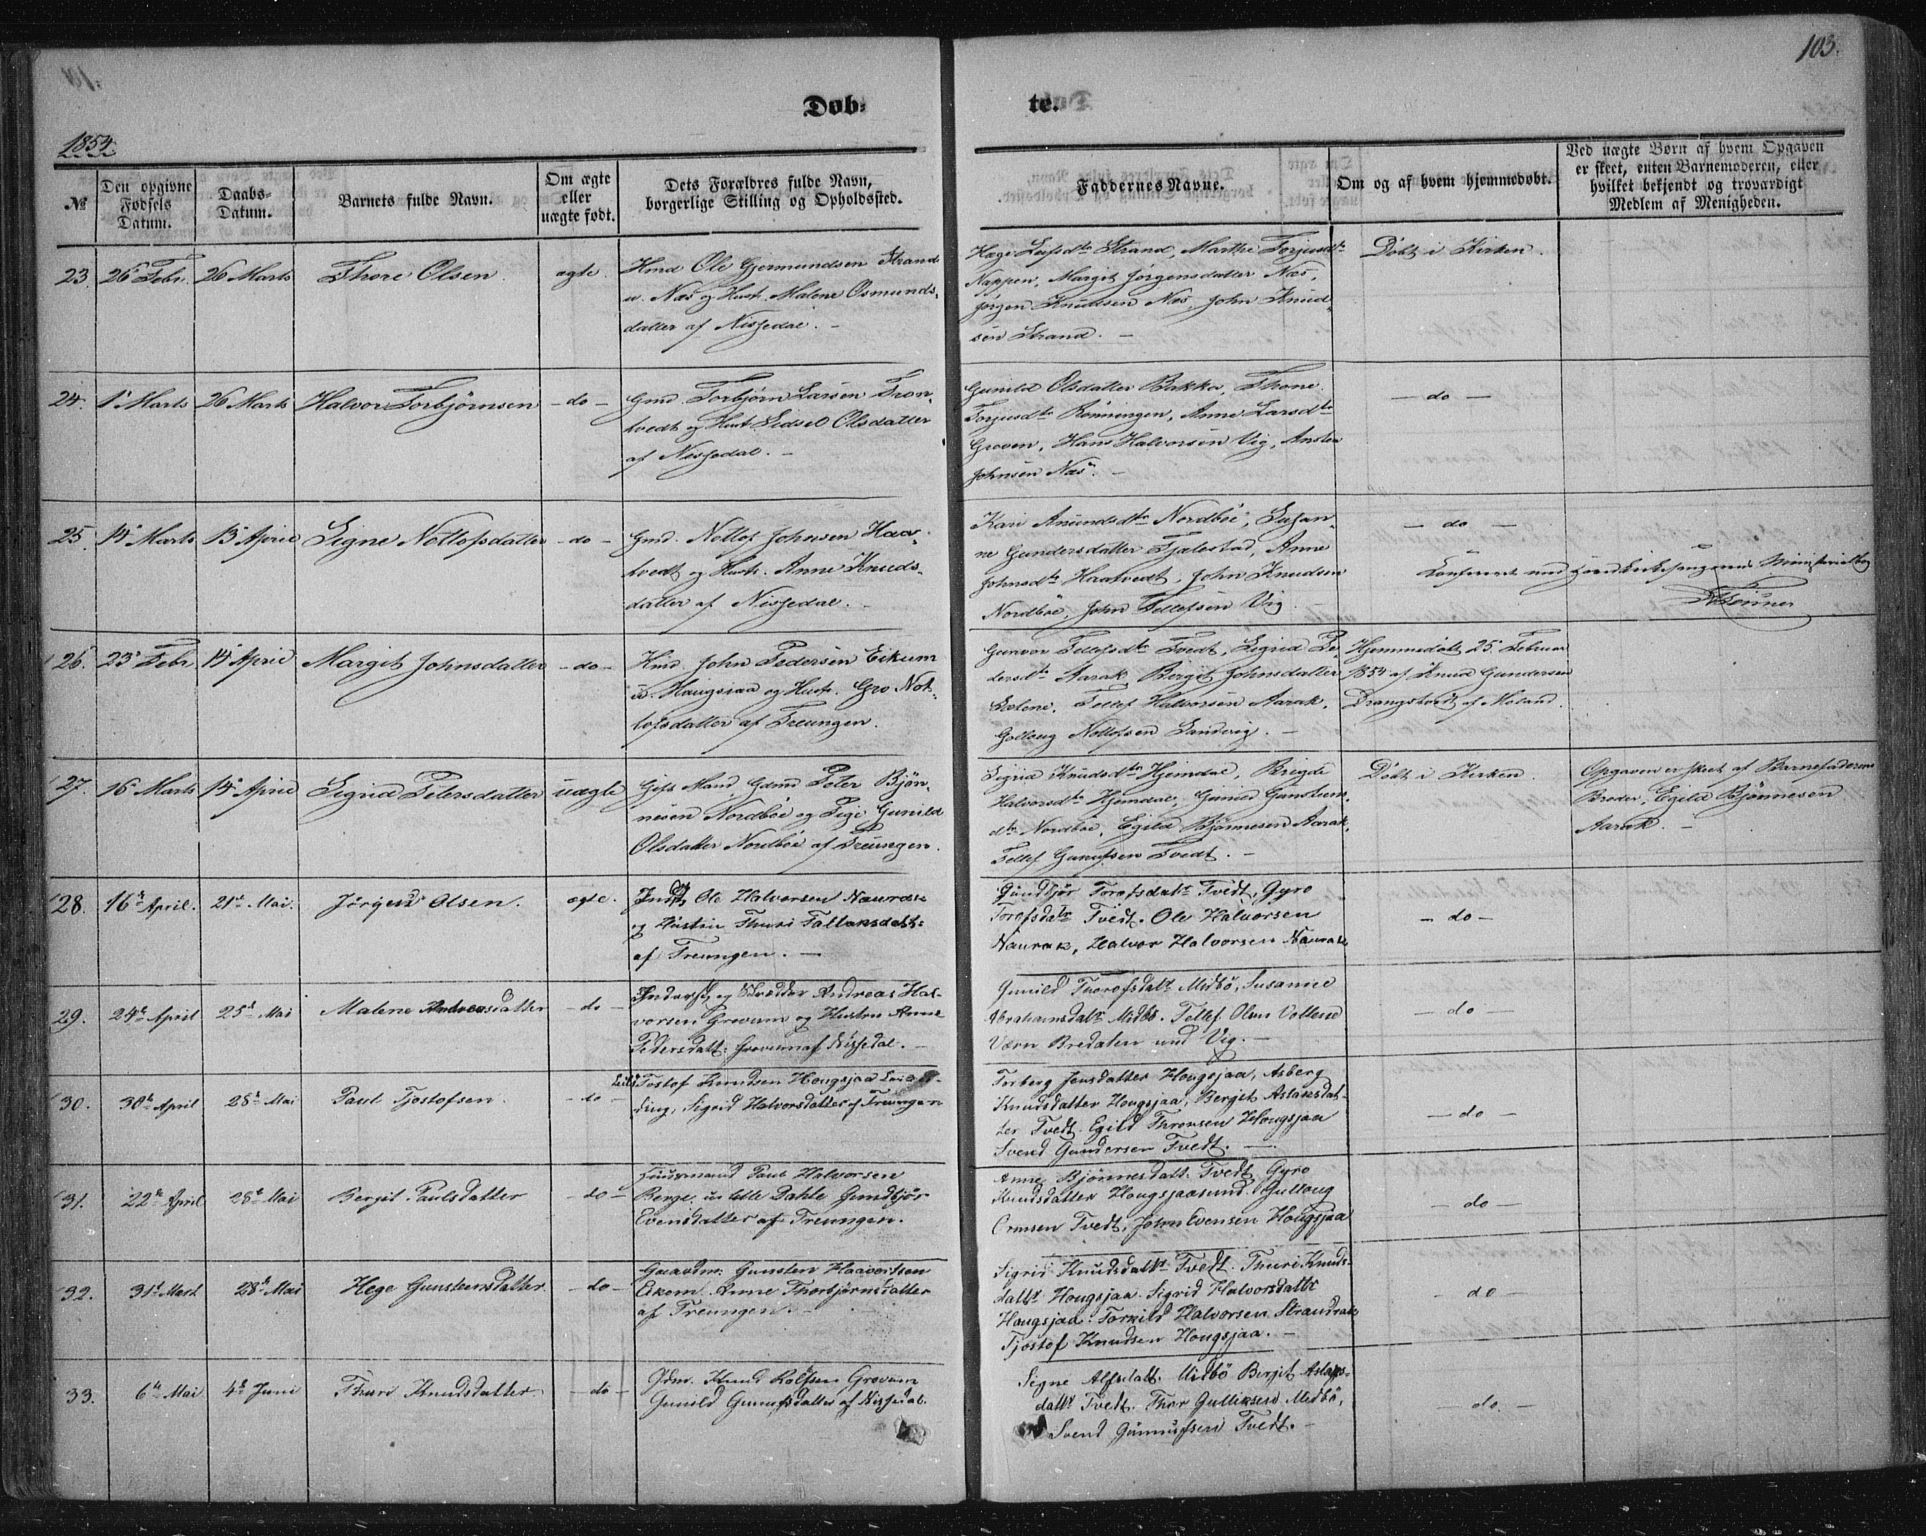 103.
Døb= te.
1854.
№
Den opgivne Fødsels Datum.
Daabs-Datum.
Barnets fulde Navn.
Om ægte eller uægte født.
Dets Forældres fulde Navn, borgerlige Stilling og Opholdssted.
Faddernes Navne.
Om og af hvem hjemmedøbt.
Ved uægte Børn af hvem Opgaven er skeet, enten Barnemoderen, eller hvilket bekjendt og troværdigt Medlem af Menigheden.
23. 26 Febr. 26 Marts Thore Olsen ægte.
Hmd Ole Gjermundsen Strand
u. Næs og Hust. Malene Osmunds-
datter af Nissedal. -
Hæge Leifsdtr Strand, Marthe Torjusdtr
Nappen, Margit Jørgensdatter Næs,
Jørgen Knudsen Næs, John Knud-
sen Strand. -
Døbt i Kirken.
24. 1 Marts 26 Marts Halvor Torbjørnsen - do -
Gmd. Torbjørn Larsen Tron-
tvedt og Hust. Sidsel Olsdatter
af Nissedal. -
Gunild Olsdatter Bakka, Thone
Torjusdtr Rønningen, Anne Larsdtr
Groven, Hans Halvorsen Vig, Ansten
Johnsen Næs. -
- do -
25. 14 Marts 13 April Signe Notlofsdatter - do -
Gmd. Notlof Johnsen Haa-
tvedt og Hustr. Anne Knuds-
datter af Nissedal. -
Kari Anundsdtr Nordbøe, Susan-
ne Gundersdatter Fjalestad, Anne
Johnsdtr Haatvedt, John Knudsen
Nordbøe, John Tellefsen Vig.
- do -
Confereret med Ministerialbog
26. 23 Febr. 14 April Margit Johnsdatter - do -
Hmd. John Pedersen Eikum
u. Haugsjaa og Hustr. Gro Not-
lofsdatter af Treungen.
Gunvor Tellefsdtr Tvedt, Sigrid Pe-
dersdtr Aarak, Bergit Johnsdatter
Tellef Halvorsen Aarak,
Gollaug Notlofsen Sandvig. -
Hjemmedøbt 25 Februar
1854 af Knud Gundersen
Drangstvedt af Moland.
27. 16 Marts 14 April Sigrid Petersdatter uægte
Gift Mand, Gdmd Peter Bjøn-
nesen Nordbøe og Pige Gunild
Olsdatter Nordbøe af Treungen.
Sigrid Knudsdtr Hjemdal, Brigde
Halvorsdtr Hjemdal, Gunild Gunsteins-
dtr Nordbøe, Egild Bjønnesen Aarak,
Tellef Gunufsen Tvedt. -
Døbt i Kirken
Opgaven er skeet af Barnefaderens
Broder, Egild Bjønnesen
Aarak. -
28. 16de April. 21de Mai. Jørgen Olsen. ægte.
Inds. Ole Halvorsen Naurak
og Hustru Thuri Tallaksdatt:
af Treungen. -
Gundbjør Torofsdatr Tvedt, Gyro
Torofsdatr Tvedt. Ole Halvorsen
Naurak, Halvor Halvorsen Naurak
- do -
29. 24de April 25de Mai Malene Andreasdatter - do -
Inderst og Skrædder Andreas Hal-
vorsen Grovum og Hustru Anne
Pedersdatt: Grovum af Nissedal. -
Gunild Thorofsdatr Midbø, Susanne
Abrahamsdatr Midbø. Tellef Olsen Vollene
Værn Bredalen und Vig. -
- do -
30. 30te April 28de Mai Paul Tjostofsen. - do -
Tostof Knudsen Hougsjaa
Sigrid Halvorsdatter af Treungen
Torberg Jensdatter Hougsjaa, Asberg
Knudsdatter Hougsjaa, Bergit Aslaksdat-
ter Tvedt. Egild Thronsen Hougsjaa
Svend Gundersen Tvedt. -
- do -
31. 22de April 28de Mai Bergit Paulsdatter - do -
Huusmand Paul Halvorsen
Berge u. lille Dahle Gundbjør
Evensdatter af Treungen.
Anne Bjønnesdatt. Tvedt, Gyro
Knudsdatter Hougsjaasund. Gullaug
Ormsen Tvedt, John Evensen Hougsjaa
- do -
32. 31te Mart 28de Mai Hege Gunsteensdatter - do -
Gaardm: Gunsten Haavorsen
Eikom. Anne Thorbjørnsdatter
af Treungen. -
Sigrid Knudsdatr Tvedt. Thuri Knuds-
datr Hougsjaa. Sigrid Halvorsdatr
Hougsjaa. Tornild Halvorsen Strandrak
Tjostof Knudsen Hougsjaa. -
- do -
33. 6te Mai 4de Juni Thuri Knudsdatter - do -
Gdm. Knud Rolfsen Grovum
Gunild Gunufsdatter af Nissedal.
Signe Alfsdatt. Midbø Bergit Aslaks-
datr Tvedt. Thor Gulliksen Midbø,
Svend Gunnufsen Tvedt. -
- do. -